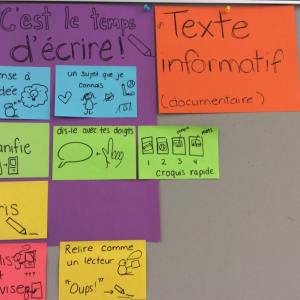 C'est le temps
d'écrire!
Texte
informatif
(documentaire)
un sujet que je
connais
dis-le avec tes doigts
1 2 3 4
croquis rapide
Relire comme
un lecteur
"Oups!"